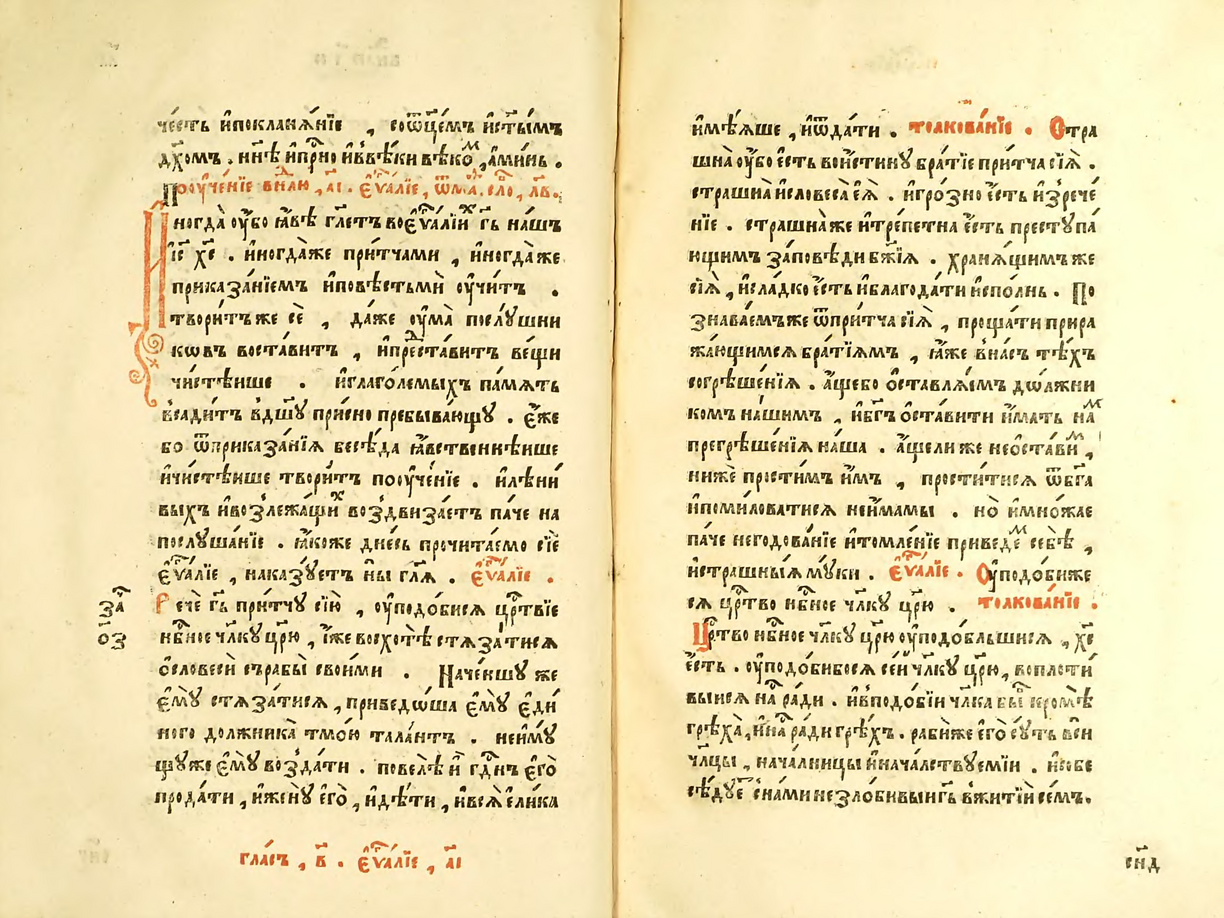 че́сть и҆покланѧ́нїе , соѻ҆ц҃е́мъ и҆ст҃ы́мъ
дх҃омъ . нн҃ѣ и҆при́сно и҆вѣ́ки вѣко́м , а҆ми́нь .
Поꙋче́нїе внлю , а҃і . є҆ѵа́лїе , ѿм҃а . сло , л҃в .
Иногда̀ ᲂу҆́бо ꙗ҆́вѣ гл҃етъ воєѵа́лїих гь҃ на́шъ
і҆с҃ х҃с . и҆ногда́же при́тчами , и҆ногда́же
приказа́нїемъ и҆повѣстьмѝ ᲂу҆чи́тъ .
твори́тъже сѐ , да́же ᲂу҆ма̀ послꙋ́шни
кѡвъ воста́витъ , и҆преста́витъ ве́щи
чистѣ́ише . и҆глаго́лемыхъ па́мѧть
всади́тъ вдш҃ꙋ̀ при́сно пребыва́ющꙋ . є҆́же
бо ѿприказа́нїѧ бесѣ́да ꙗ҆́вственнѣише
и҆чистѣ́ише твори́тъ поᲂуче́нїе . и҆лѣни́
выхъ и҆возлежа́щих воздвиза́етъ па́че на
послꙋша́нїе . ꙗ҆́коже дне́сь прочита́емо сїѐ
є҆ѵа́лїе , наказꙋ́етъ ны̀ гл҃ѧ . є҆ѵа́лїе .
Речѐ гь҃ при́тчꙋ сїю̀ , ᲂу҆подо́бисѧ црⷭ҇твїе
нбⷭ҇ное чл҃кꙋ̀ цр҃ю̀ , и҆́же восхотѣ̀ стѧза́тисѧ
ѻ҆словесѝ сърабы̀ свои́ми . Наче́ншꙋ же
є҆мꙋ̀ стѧза́тисѧ , приведо́ша є҆мꙋ̀ є҆ди́
ного должника̀ тмо́ю тала́нтъ . неи҆мꙋ́
щꙋже є҆мꙋ̀ возда́ти . повелѣ̀ и҆̀ гдⷭ҇нь є҆гѡ̀
прода́ти , и҆женꙋ̀ є҆го̀ , и҆дѣ́ти , и҆всѧ̀ є҆ли́ка
за҃
о҃з
гла́съ , в҃ . є҆ѵа́лїе , а҃і
и҆мѣ́ѧше , и҆ѿда́ти . толкова́нїе . Ѻ҆тра
шна̀ ᲂу҆́бо є҆́сть вои҆́стинꙋ бра́тїе при́тча сїѧ̀ .
страшна̀ и҆словеса̀ є҆ѧ̀ . и҆гро́зно є҆́сть и҆зрече́
нїе . страшна́же и҆тре́петна є҆́сть престꙋпа́
ющимъ за́повѣди бж҃їѧ . хранѧ́щимъже
сїѧ̀ , и҆сла́дко є҆́сть и҆благода́ти и҆спо́лнь . По
знава́емъже ѿпри́тча сїѧ̀ , проща́ти прира
жа́ющимсѧ бра́тїѧмъ , ꙗ҆́же вна́съ тѣ́хъ
согрѣше́нїѧ . а҆́щебо ѻ҆ставлѧ́емъ дѡлжни
ко́мъ на́шимъ , и҆бг҃ъ ѻ҆ста́вити и҆́мать нам
прегрѣше́нїѧ на́ша . а҆́щели же неѻ҆ста́вим ,
нижѐ прости́мъ и҆̀мъ , прости́тисѧ ѿбг҃а
и҆поми́ловатисѧ неи҆́мамы . но̀ и҆мно́жае
па́че негодова́нїе и҆томле́нїе приведе́м себѣ̀ ,
и҆стра́шныѧ мꙋ́ки . є҆ѵа́лїе . Оу҆подо́биже
сѧ црⷭ҇тво нбⷭ҇ное чл҃кꙋ̀ цр҃ю̀ . толкова́нїе .
Црⷭ҇тво нбⷭ҇ное чл҃кꙋ̀ цр҃ю̀ ᲂу҆подо́бльшисѧ , х҃с
є҆́сть . ᲂу҆подо́бибосѧ се́й чл҃кꙋ̀ цр҃ю̀ , воплоти́
выисѧ на́с ра́ди . и҆вподо́бїи чл҃ка бы́сть кромѣ̀
грѣха̀ , и҆на́с ра́ди грѣ́хъ . раби́же є҆го̀ сꙋ́ть всѝ
чл҃цы , нача́лницы и҆нача́лствꙋемїи . и҆собе
сѣ́дꙋет сна́ми незло́бивыи гь҃ вжитїѝ се́мъ .
сн҃д